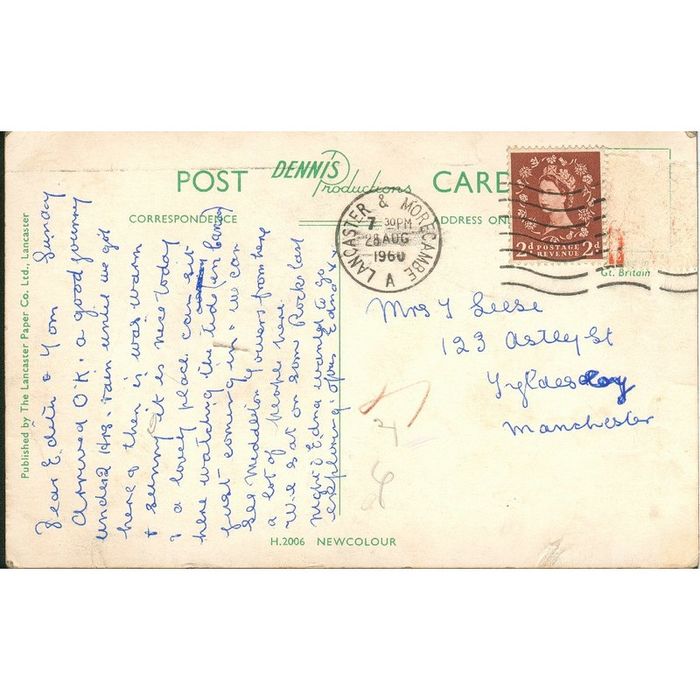 POST CARD
DENNIS
Productions
CORRESPONDENCE
ADDRESS ONLY
Published by The Lancaster Paper Co. Ltd., Lancaster
Sunday
Dear Edith & Tom
Arrived O.K. a good journey
under 2 Hrs. rain until we got
here & then is was warm
& sunny, it is nice today
& a lovely place. can sit
here watching the tide (in Canday)
just coming in. we can
see Meddleton Towers from here
a lot of people here.
We sat on some Rocks last
night Edna wanted to go
exploring. Opes Edna xx
LANCASTER & MORECAMBE
7-30PM
28 AUG
1960
A
2d POSTAGE REVENUE 2d
Gt. Britain
Mrs T Leese
123 Astley St
Tyldesley
Manchester
H.2006 NEWCOLOUR